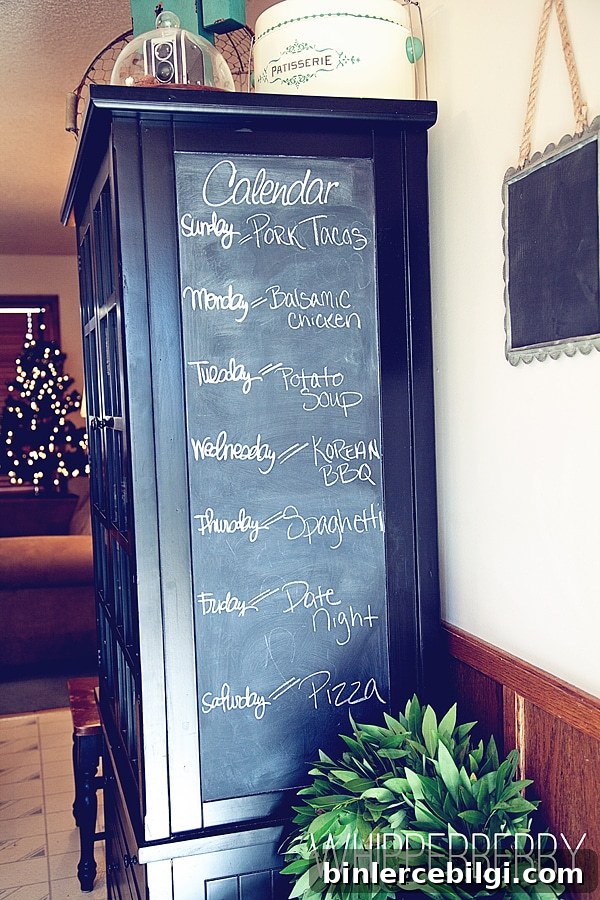 PATISSERIE
Calendar
Sunday // Pork Tacos
Monday // Balsamic
chicken
Tuesday // Potato
Soup
Wednesday // KOREAN
BBQ
Thursday // Spaghetti
Friday // Date
night
Saturday // Pizza
WHIPPERBERRY
binlercebilgi.com